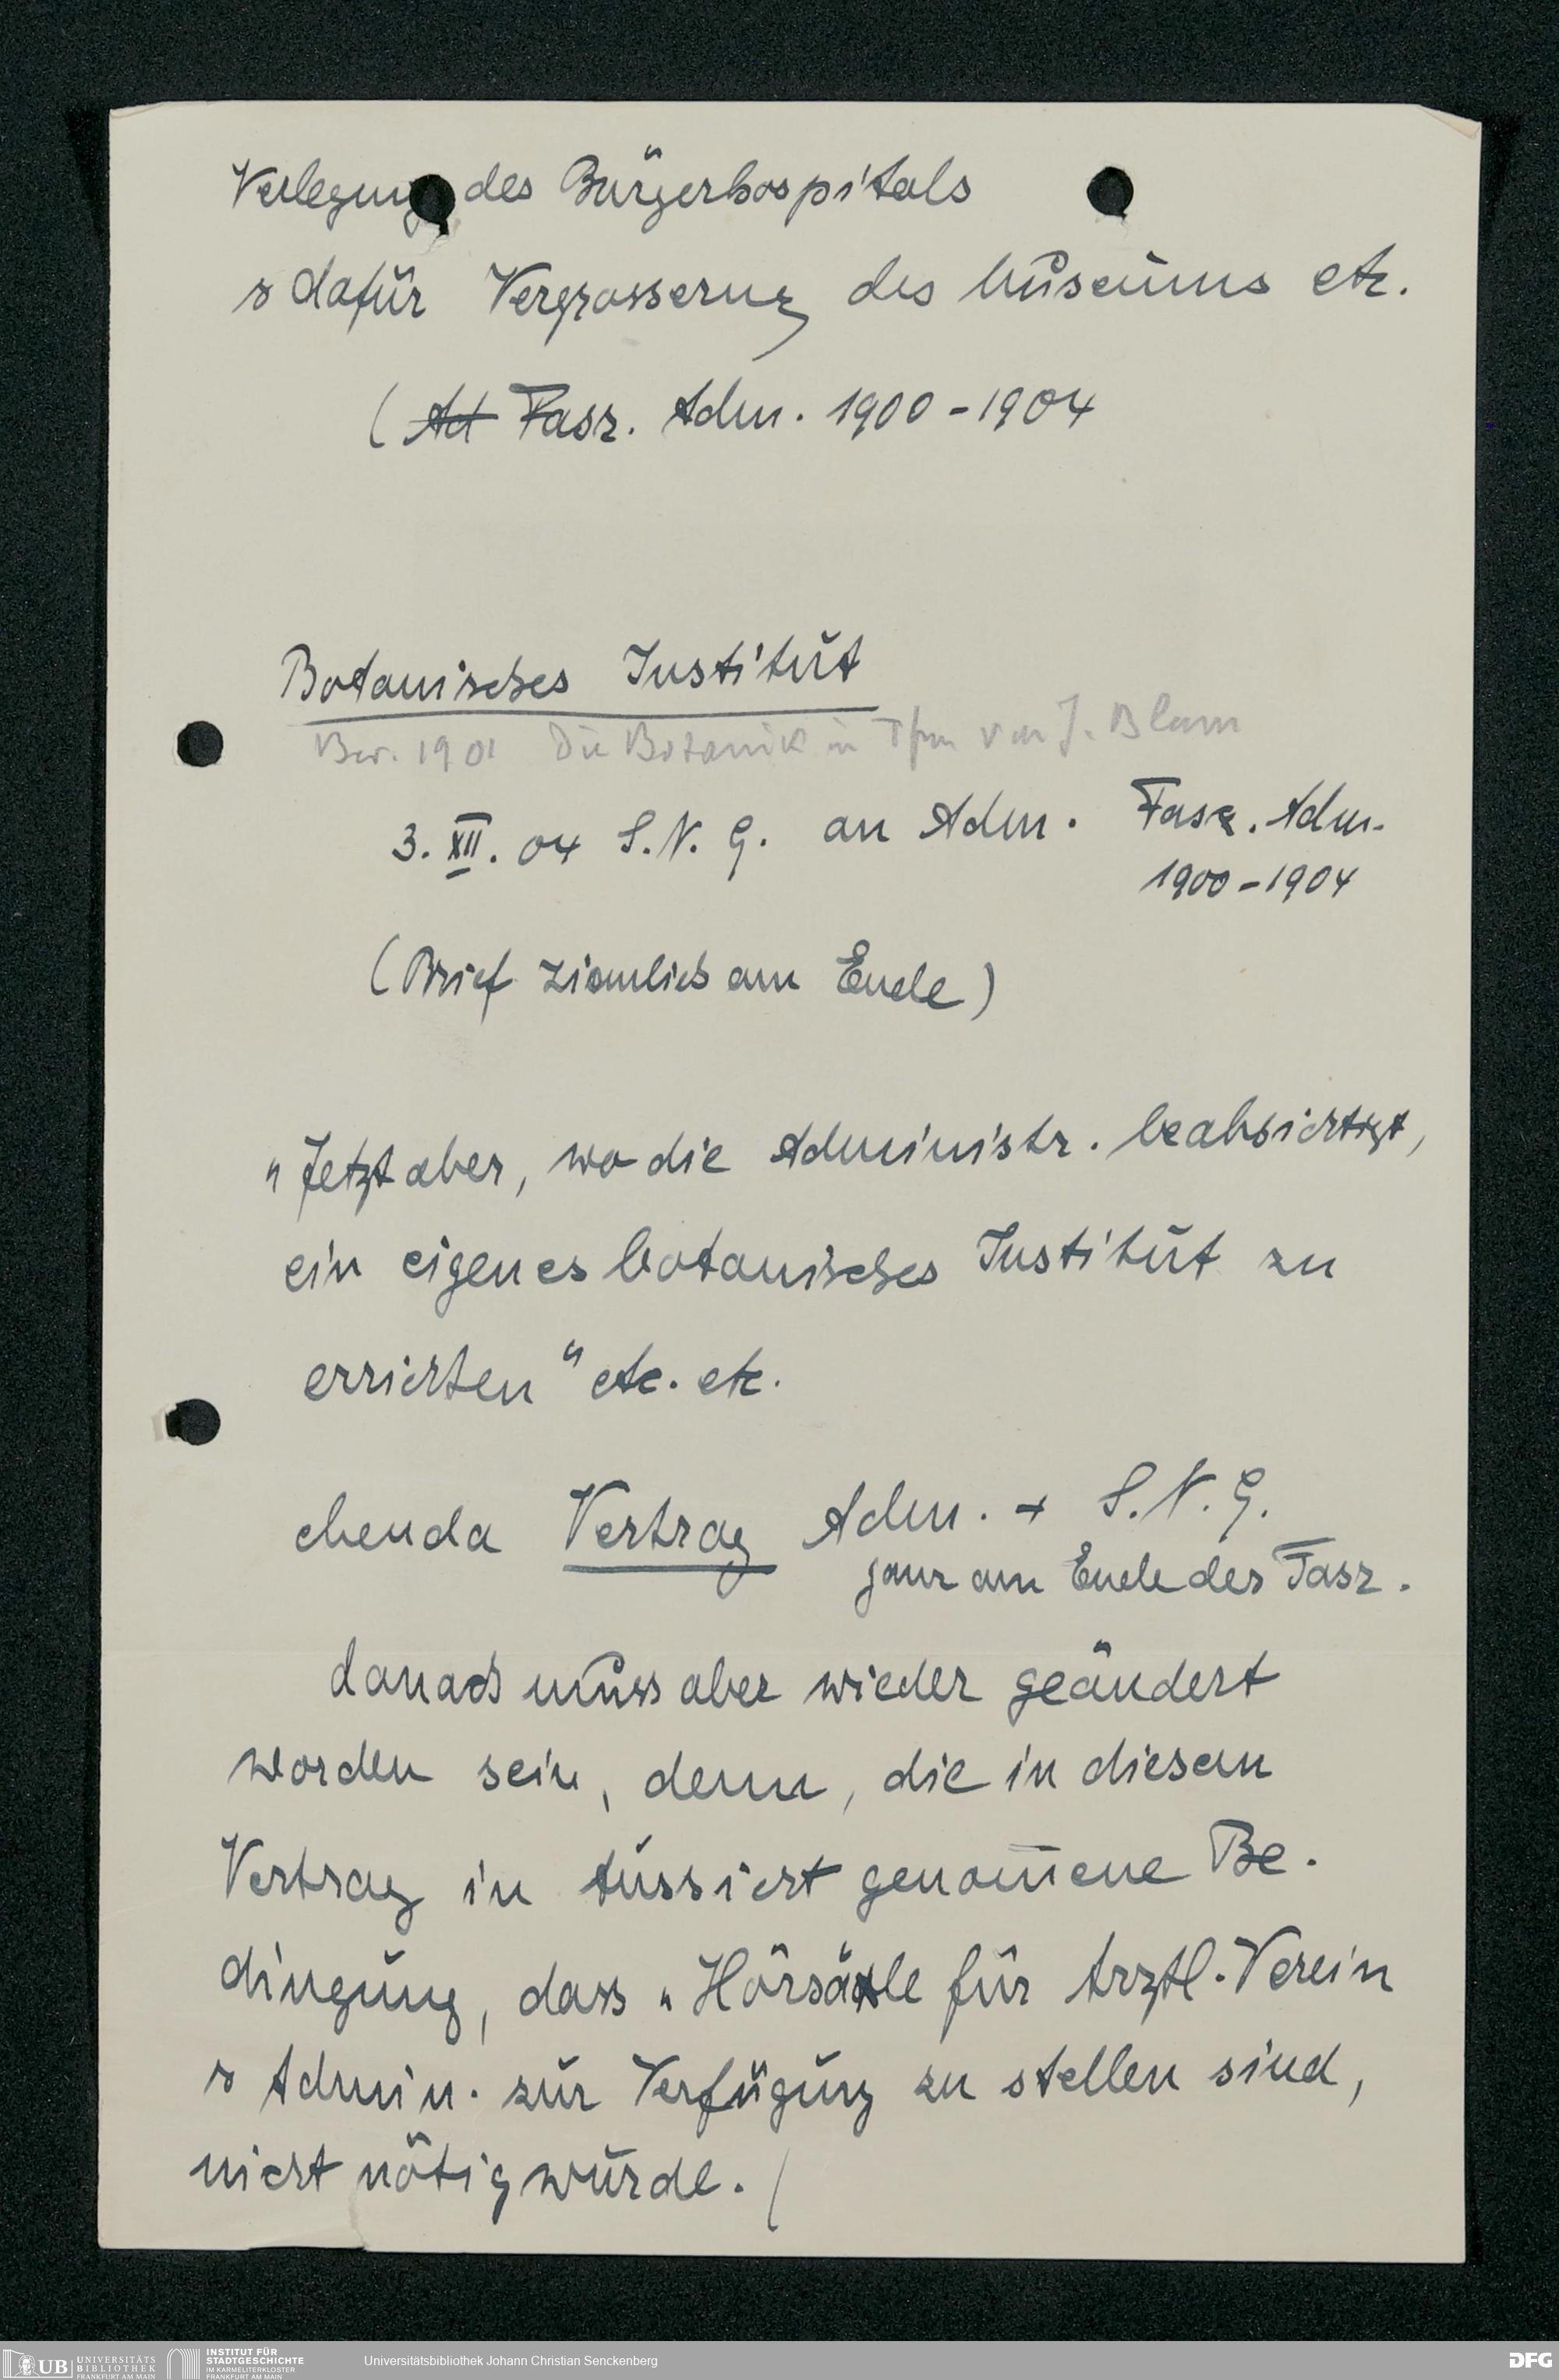 Verlegung des Bürgerhospitals
& dafür Vergrosserung des Museums etc.
(Ad Fasz. Adm. 1900-1904
Botanisches Institut
Ber. 1901 Die Botanik in Ffm von J. Blum
3. XII. 04 S. N. G. an Adm. Fasz. Adm.
1900-1904
(Brief ziemlich am Ende)
"Jetzt aber, wo die Administr. beabsichtigt,
ein eigenes botanisches Institut zu
errichten" etc. etc.
ebenda Vertrag Adm. + S. N. G.
ganz am Ende des Fasz.
danach muss aber wieder geändert
worden sein, denn, die in diesem
Vertrag in Aussicht genomene Be-
dingung, dass "Hörsääle für Ärztl. Verein
& Admin. zur Verfügung zu stellen sind,
nicht nötig wurde. /
UB UNIVERSITÄTS
BIBLIOTHEK
FRANKFURT AM MAIN
INSTITUT FÜR
STADTGESCHICHTE
IM KARMELITERKLOSTER
FRANKFURT AM MAIN
Universitätsbibliothek Johann Christian Senckenberg
DFG